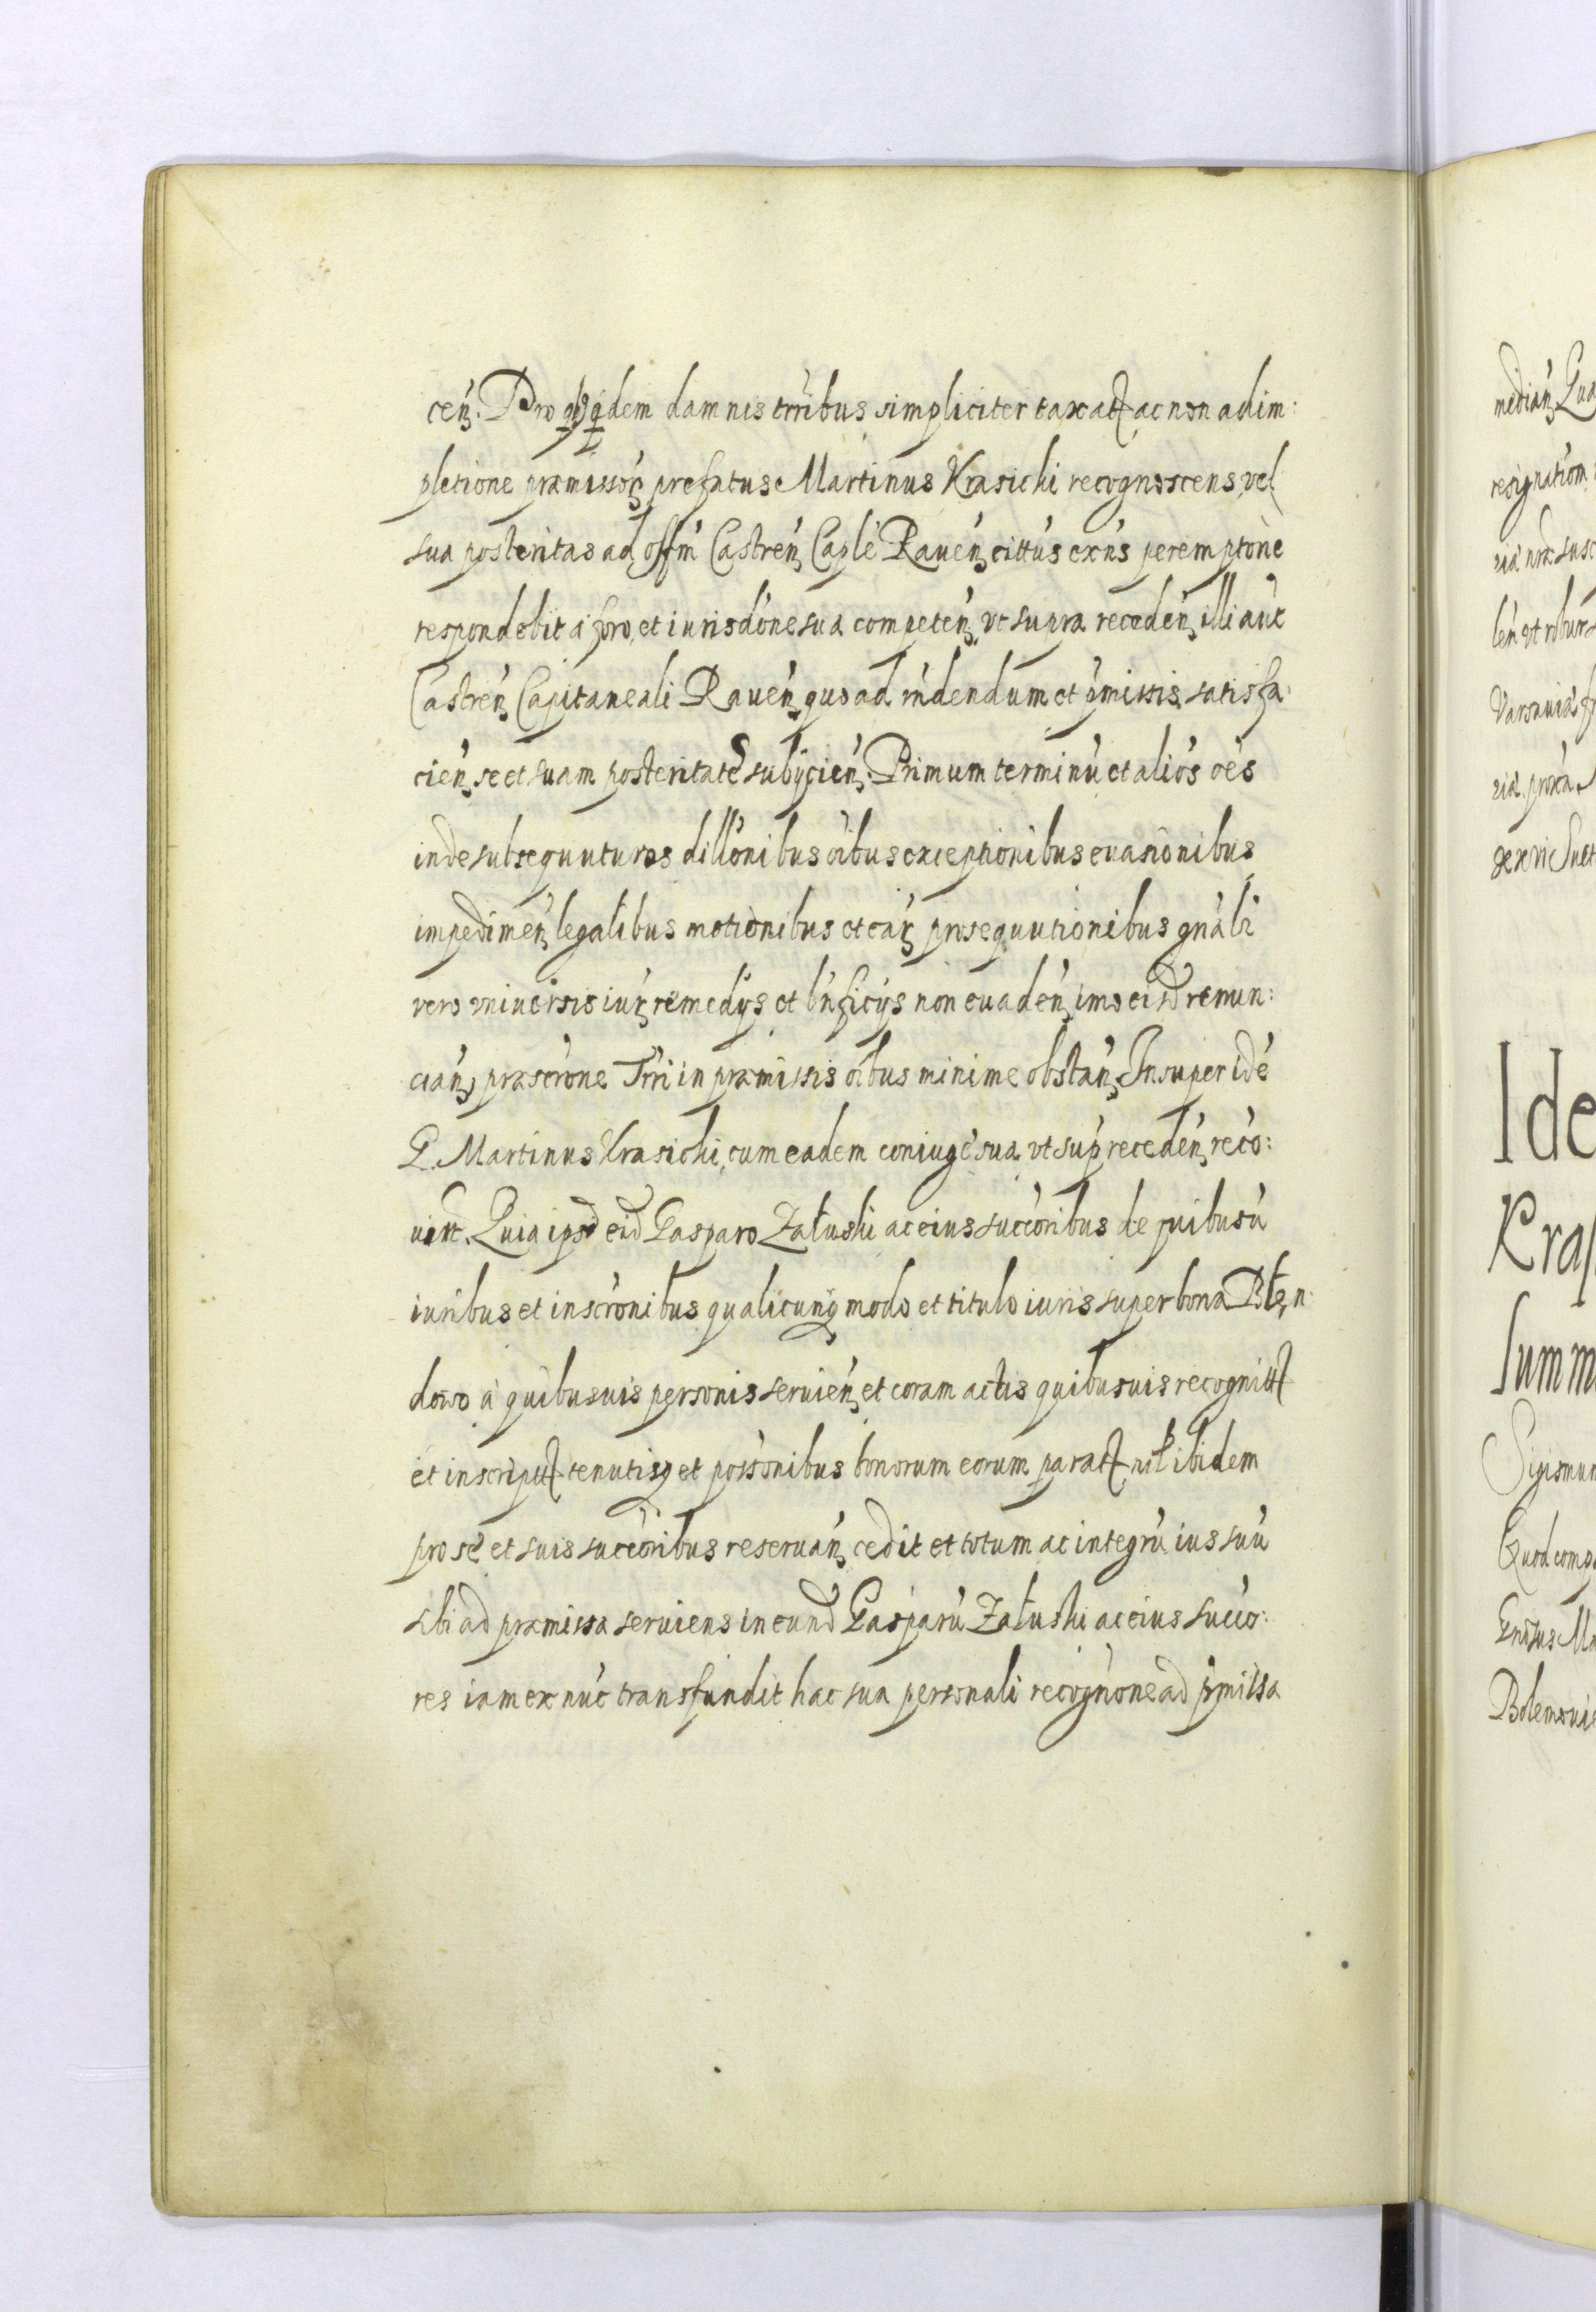 cen. Pro quidem damnis trribus simpliciter taxat ac non adim:
pletione præmissor prefatus Martinus Krasicki recognoscens vel
sua posteritas ad offm Castren Caple Rauen cittus exns peremptone
respondebit a foro et iurisdone sua competen vt supra receden illi aut
Castren Capitaneali Rauen quo ad rndendum et pmissis satisfa:
cien se et suam posteritate subÿcien. Primum terminu et alios oes
inde subsequuturos dillonibus oibus exceptionibus euasionibus
impedimen legalibus motionibus et car prosequutionibus gnali
vero vniuersis iur remedÿs et bnficÿs non euaden imo eisd renun:
cian præscrone Trri in præmissis oibus minime obstan. Insuper ide
G. Martinus Krasicki cum eadem coniuge sua vt sup receden reco:
uit. Quia ipse eid Gasparo Załuski ac eius succoribus de quibusu
iuribus et inscronibus qualicunq modo et titulo iuris super bona Błen
dowo a quibusuis personis seruien et coram actis quibusuis recognitt
et inscriptt tenutisq et possonibus bonorum eorum parat nil ibidem
pro se et suis succoribus reseruan cedit et totum ac integru ius suu
sibi ad præmissa seruiens in eund Gasparu Załuski ac eius succo:
res iam ex nuc transfundit hac sua personali recognone ad pmissa
median
resignatiom
Varsauiæ
Ide
Kras
Summ
Sigismun
Quod comp
Bolemouie